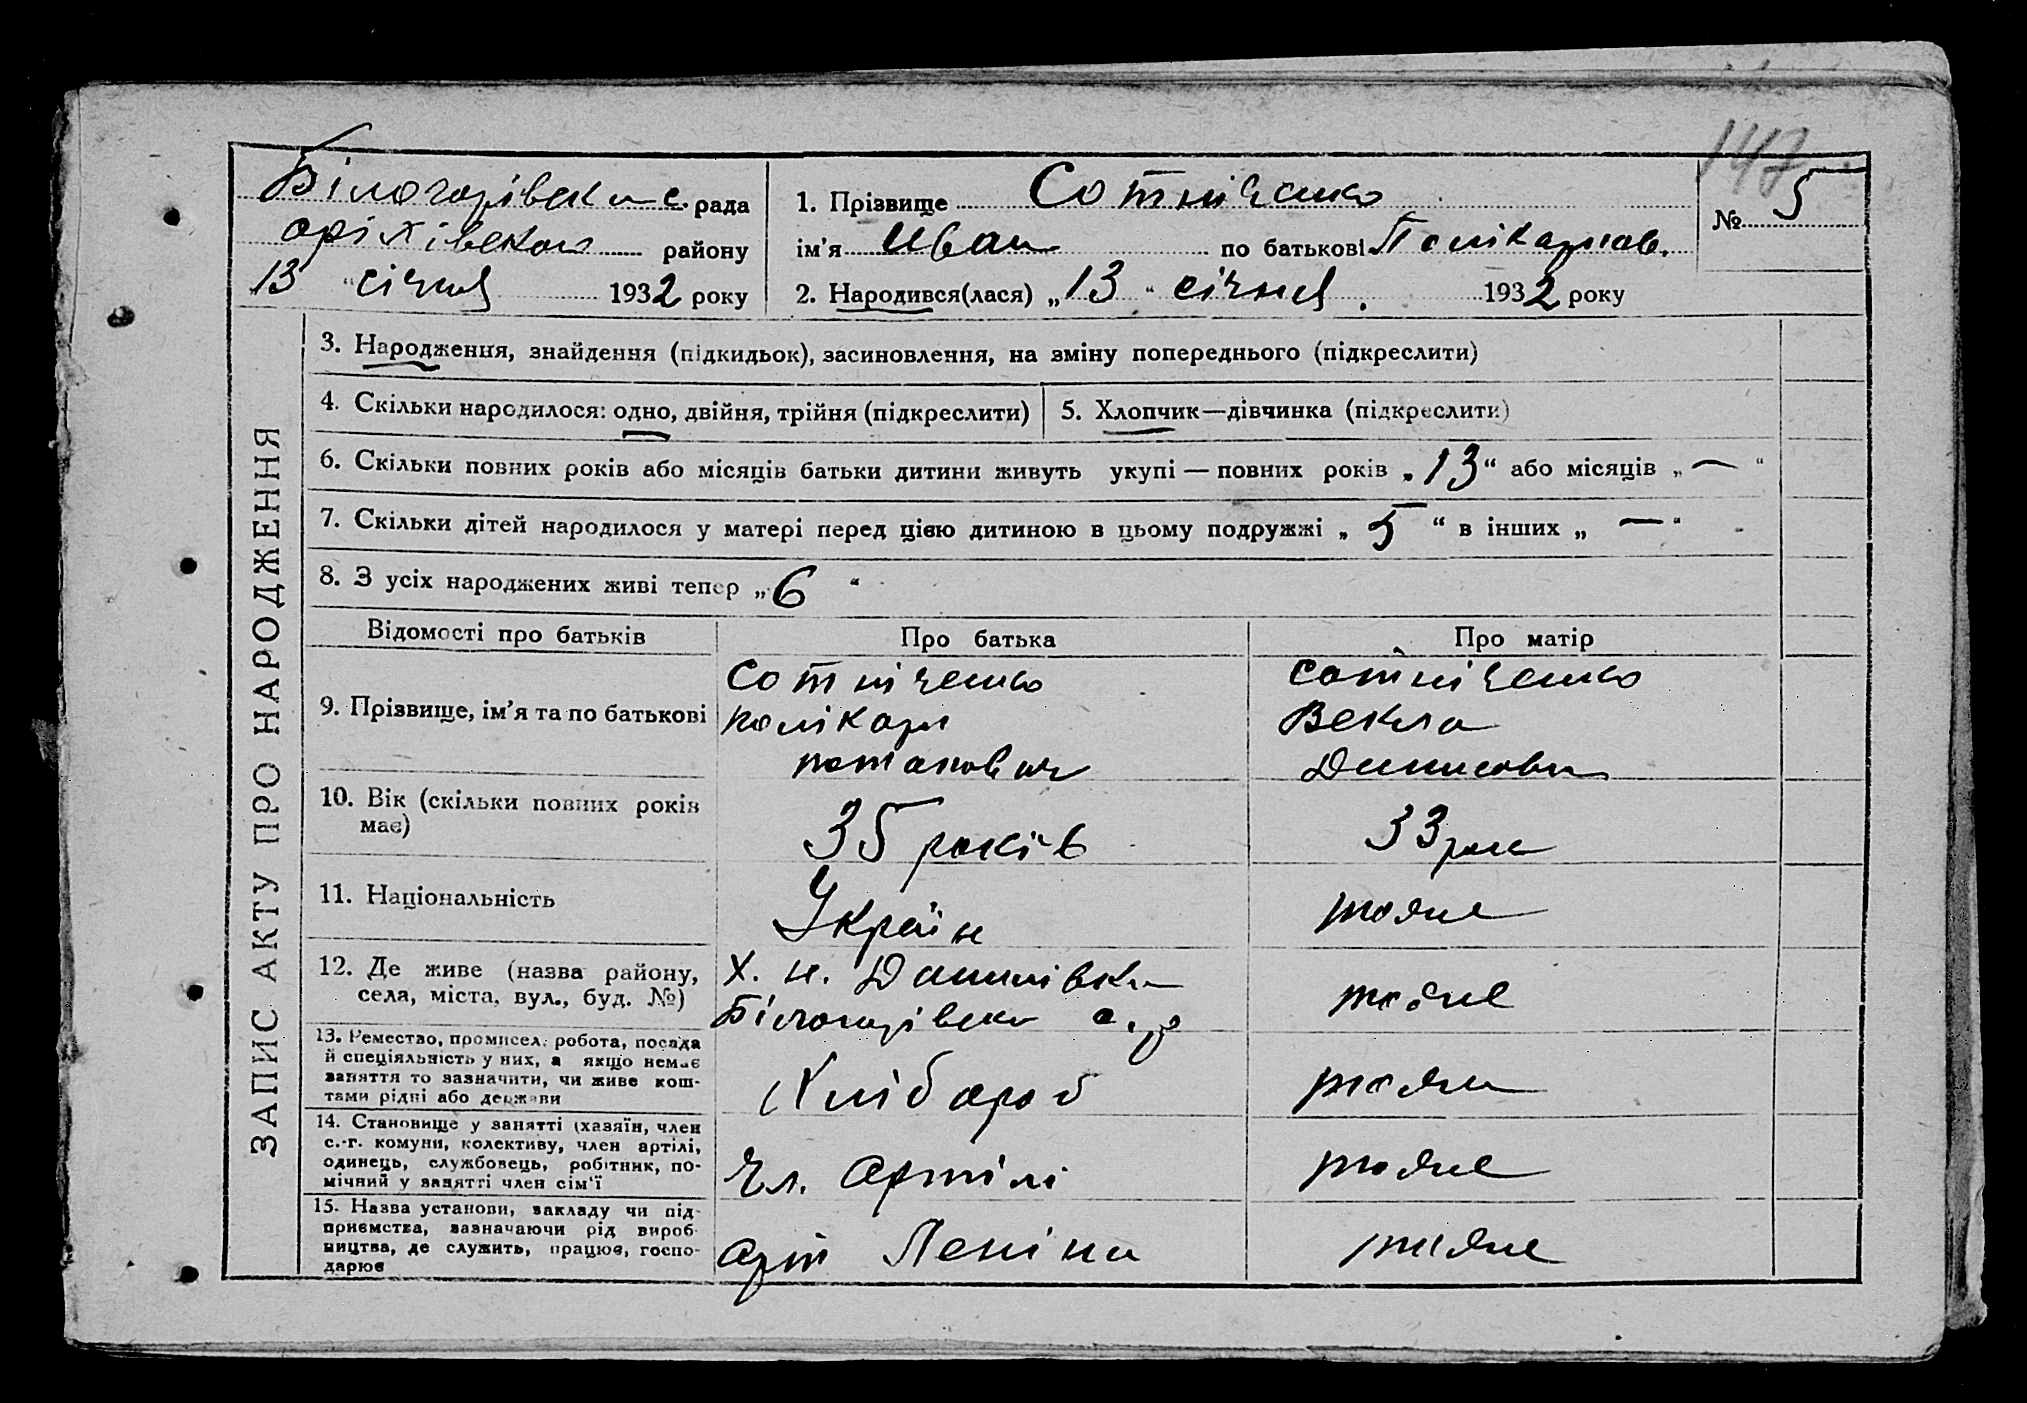 147
Білогорівська с. рада
Оріхівського району
13 "січня 1932 року
1. Прізвище Сотніченко
ім'я Иван по батькові Полікарпов.
2. Народився(лася) „13" січня 1932 року
№ 5
ЗАПИС АКТУ ПРО НАРОДЖЕННЯ
3. Народження, знайдення (підкидьок), засиновлення, на зміну попереднього (підкреслити)
4. Скільки народилося: одно, двійня, трійня (підкреслити)
5. Хлопчик—дівчинка (підкреслити)
6. Скільки повних років або місяців батьки дитини живуть укупі — повних років „13" або місяців „—"
7. Скільки дітей народилося у матері перед цією дитиною в цьому подружжі „5" в інших „—"
8. З усіх народжених живі тепер „6"
Відомості про батьків Про батька Про матір
9. Прізвище, ім'я та по батькові
Сотніченко
Полікарп
Потапович
Сотніченко
Векла
Динисовна
10. Вік (скільки повних років
має)
35 років
33 рок
11. Національність
Україн
тоже
12. Де живе (назва району,
села, міста, вул., буд. №)
Х. н. Данилівка
Білогорівська с. р
тоже
13. Ремество, промисел, робота, посада
й спеціяльність у них, а якщо немає
заняття то зазначити, чи живе кош-
тами рідні або держави
Хлібороб
тоже
14. Становище у занятті (хазяїн, член
с.-г. комуни, колективу, член артілі,
одинець, службовець, робітник, по-
мічний у занятті член сім'ї
Чл. Артілі
тоже
15. Назва установи, закладу чи під-
приємства, зазначаючи рід вироб-
ництва, де служить, працює, госпо-
дарює
Арт Леніна
тоже